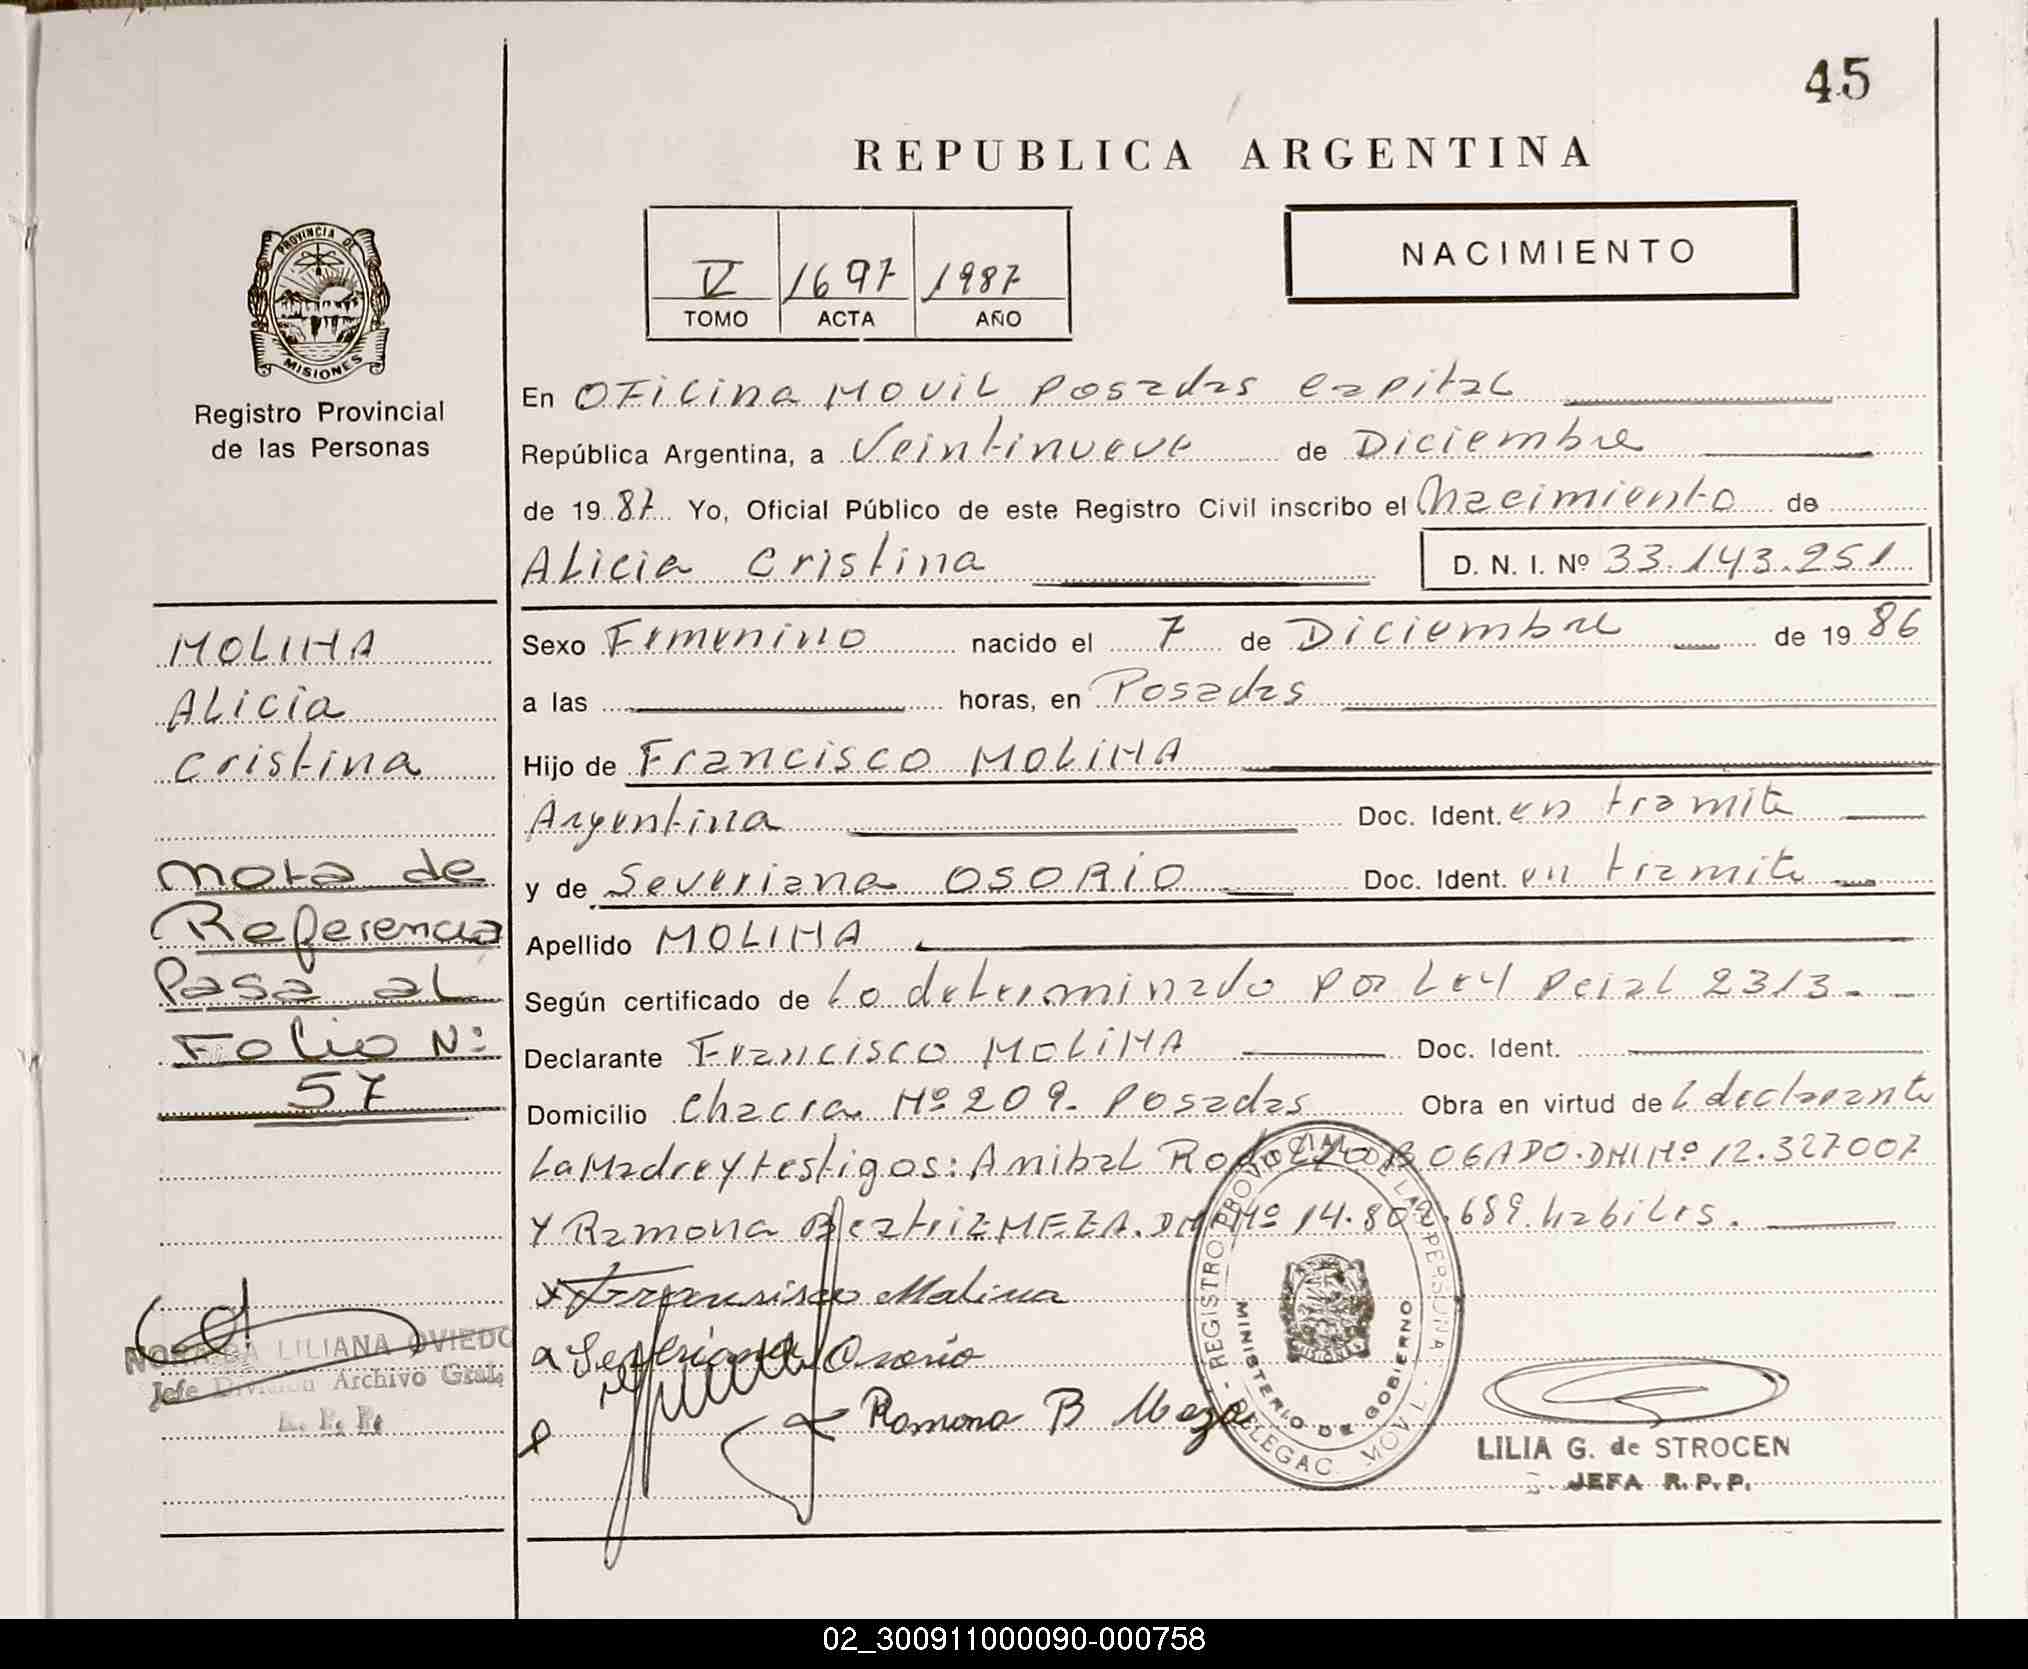 45
REPUBLICA ARGENTINA
PROVINCIA DE
MISIONES
Registro Provincial
de las Personas
V 1697 1987
TOMO ACTA AÑO
NACIMIENTO
En Oficina Movil Posadas Capital
República Argentina, a Veintinueve de Diciembre
de 19 87 Yo, Oficial Público de este Registro Civil inscribo el Nacimiento de
Alicia Cristina D. N. I. Nº 33.143.251
MOLINA
Alicia
Cristina
Nota de
Referencia
Pasa al
Folio Nº
57
Sexo Femenino nacido el 7 de Diciembre de 19 86
a las horas, en Posadas
Hijo de Francisco MOLINA
Argentina Doc. Ident. en tramite
y de Severiana OSORIO Doc. Ident. en tramite
Apellido MOLINA
Según certificado de lo determinado por Ley Pcial 2313.-
Declarante Francisco MOLINA Doc. Ident.
Domicilio Chacra Nº 209- Posadas Obra en virtud de l declarante
La Madre y testigos: Anibal Rodolfo BOGADO. DNI Nº 12.327007
Y Ramona Beatriz MEZA. DNI Nº 14.802.689. habiles.
Fransisco Molina
Severiana Osorio
Ramona B Meza
REGISTRO PROVINCIAL DE LAS PERSONAS - DELEGAC. MOVIL
MINISTERIO DE GOBIERNO
LILIANA OVIEDO
Jefe División Archivo Gral.
R. P. P.
LILIA G. de STROCEN
JEFA R.P.P.
02_300911000090-000758